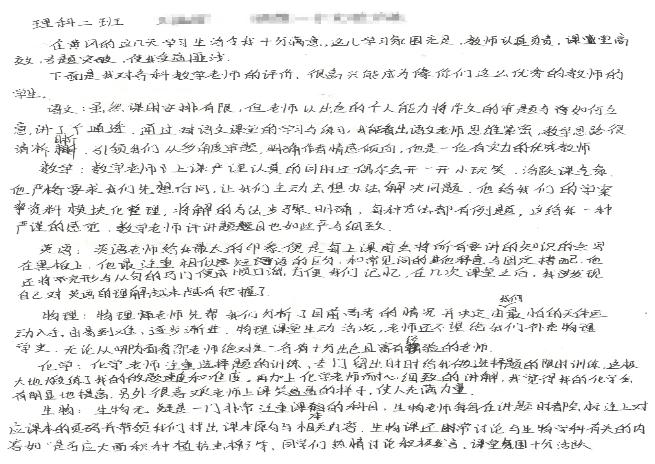 理科二班
在黄冈的这几天学习生活令我十分满意，这儿学习氛围充足，教师认真负责，课堂高
效，专题突破，使我受益匪浅。
下面是我对各科教学老师的评价，很高兴能成为像你们这么优秀的教师的
学生。
语文：虽然课时安排有限，但老师以出色的个人能力将作文的审题与该如何立
意，讲了个通透，通过对语文课堂的学习与 我能看出语文老师思维紧密，教学思路很
清晰，引领我们从多角度审题，明确作者情感倾向，他是一位有实力的优秀教师
数学：数学老师于上课严谨认真的同时也偶尔会开一开小玩笑，活跃课堂气氛
他严格要求我们先想后问，让我们主动去想办法解决问题，他给我们的学案
资料模块化整理，将解的方法步骤明确，每种方法都有例题，这给我一种
严谨的感觉，数学老师评讲题目也如此严与细致。
英语：英语老师给我最大的印象便是每上课前会将所有要讲的知识的点写
在黑板上，他最注重相似短语的区分，和常见词的其他释义与固定搭配，他
还将不定形与从句的巧门使成顺口溜，方便我们记忆，在几次课堂之后，我才发现
自己对英语的理解越来越有把握了。
物理：物理老师先帮我们分析了目前高考的情况并决定由我们最怕的天体运
动入手，由易到难，逐步渐进，物理课堂生动活泼，老师还不望给我们补充物理
学史，无论从哪方面看邵老师绝对是一名有十分出色且富有经验的老师。
化学：化学老师注重选择题的训练，专门留出时间给我做选择题的限时训练，这极
大地锻练了我的做题速度和准度，再加上化学老师耐心细致的讲解，我觉得我的化学会
有明显地提高，另外很喜欢老师上课笑 的样子，使人充满力量。
生物：生物无疑是一门非常注重课本的科目，生物老师每每在讲题时都会标注上对
应课本的页码并带领我们找出课本原句与相关内容，生物课还时常讨论与生物学科有关的内
容如“是否应大面积种植抗虫棉”等，同学们热情讨论积极发言，课堂氛围十分活跃